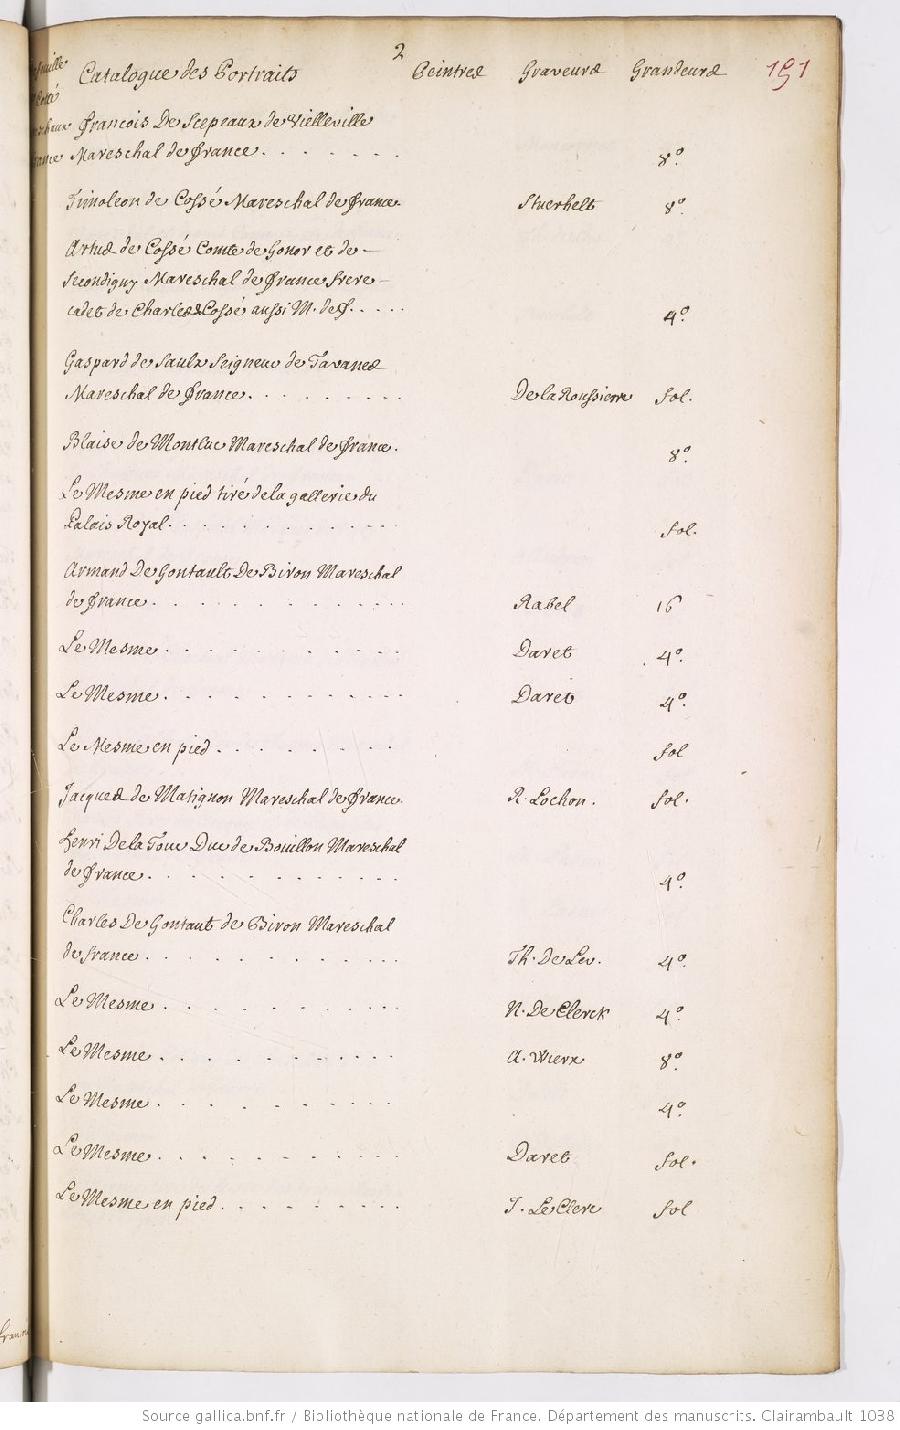 2
Catalogue des Portraits Peintres Graveurs Grandeurs 191
François De Scepeaux de Vielleville
Mareschal de france. . . . . . . 8°.
Timoleon de Cossé Mareschal de france. Stuerhelt 8°.
Artus de Cossé Comte de Gonor et de
Secondigny Mareschal de france frere
cadet de Charles de Cossé aussi M. de f. . . . 4°.
Gaspard de Saulx Seigneur de Tavanes
Mareschal de france. . . . . . . . . De la Roussiere fol.
Blaise de Montluc Mareschal de france. 8°.
Le Mesme en pied tiré de la gallerie du
Palais Royal. . . . . . . . . . . fol.
Armand De Gontault De Biron Mareschal
de france. . . . . . . . . . . Rabel 16
Le Mesme. . . . . . . . . . . Daret 4°.
Le Mesme. . . . . . . . . . . Daret 4°.
Le Mesme en pied. . . . . . . . fol
Jacques de Matignon Mareschal de france. R. Lochon. fol.
Henri De la Tour Duc de Bouillon Mareschal
de france. . . . . . . . . . . 4°.
Charles De Gontaut de Biron Mareschal
de france. . . . . . . . . . . Th. De Leu. 4°.
Le Mesme. . . . . . . . . . . N. De Clerck 4°.
Le Mesme. . . . . . . . . . . A. Wierx 8°.
Le Mesme. . . . . . . . . . . 4°.
Le Mesme. . . . . . . . . . . Daret fol.
Le Mesme en pied. . . . . . . . . J. Le Clerc fol
Source gallica.bnf.fr / Bibliothèque nationale de France. Département des manuscrits. Clairambault 1038